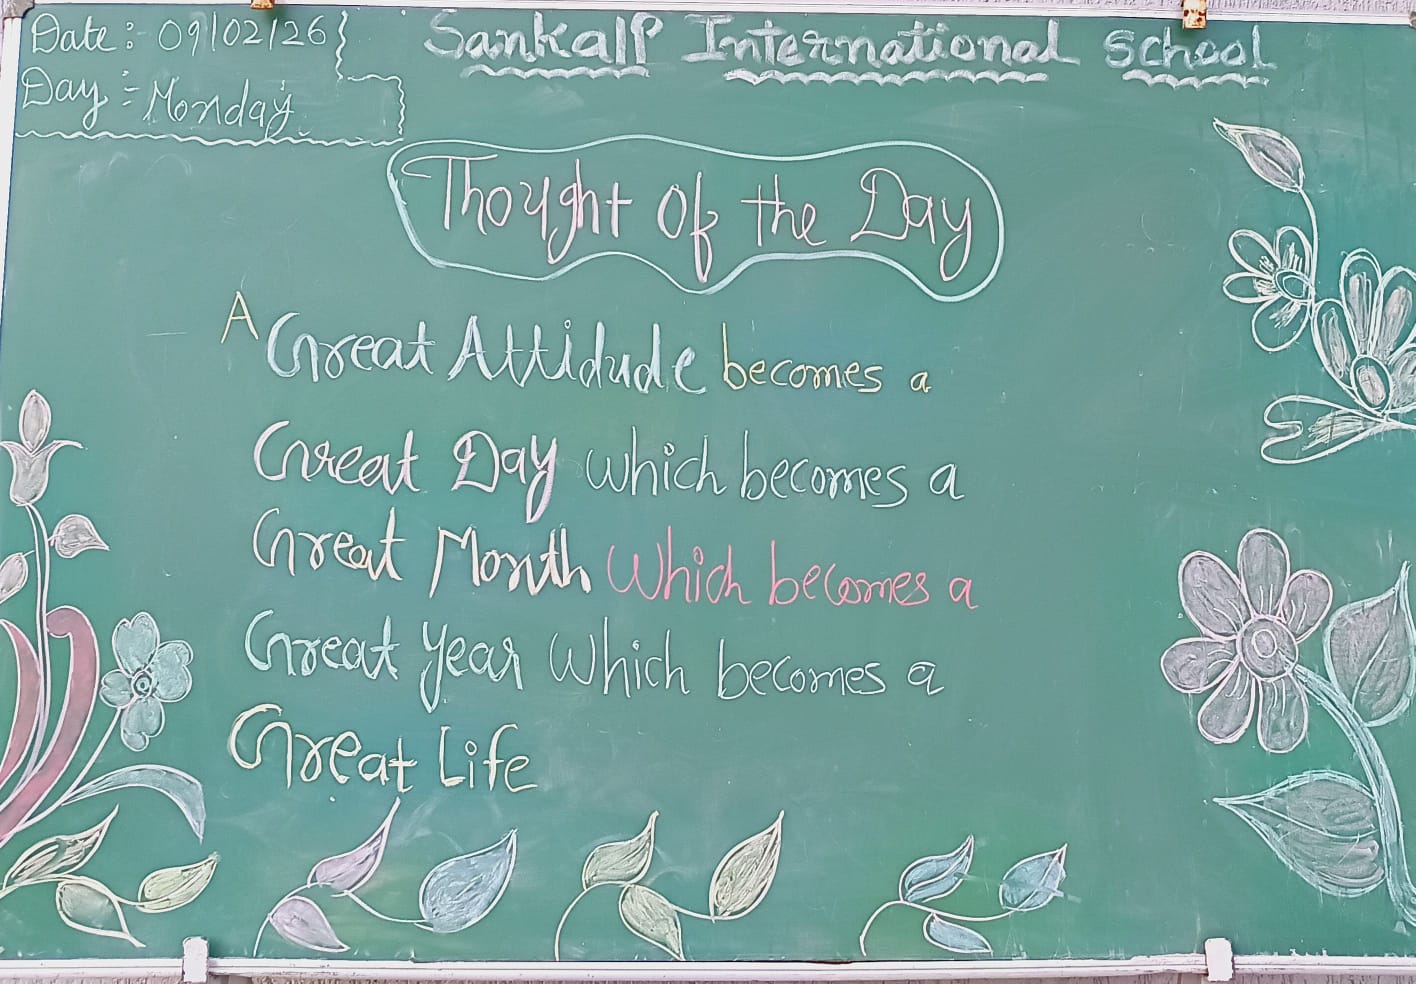 Date: 09/02/26
Sankalp International School
Day:- Monday
Thought of the Day
A Great Attidude becomes a
Great Day which becomes a
Great Month Which becomes a
Great year Which becomes a
Great Life